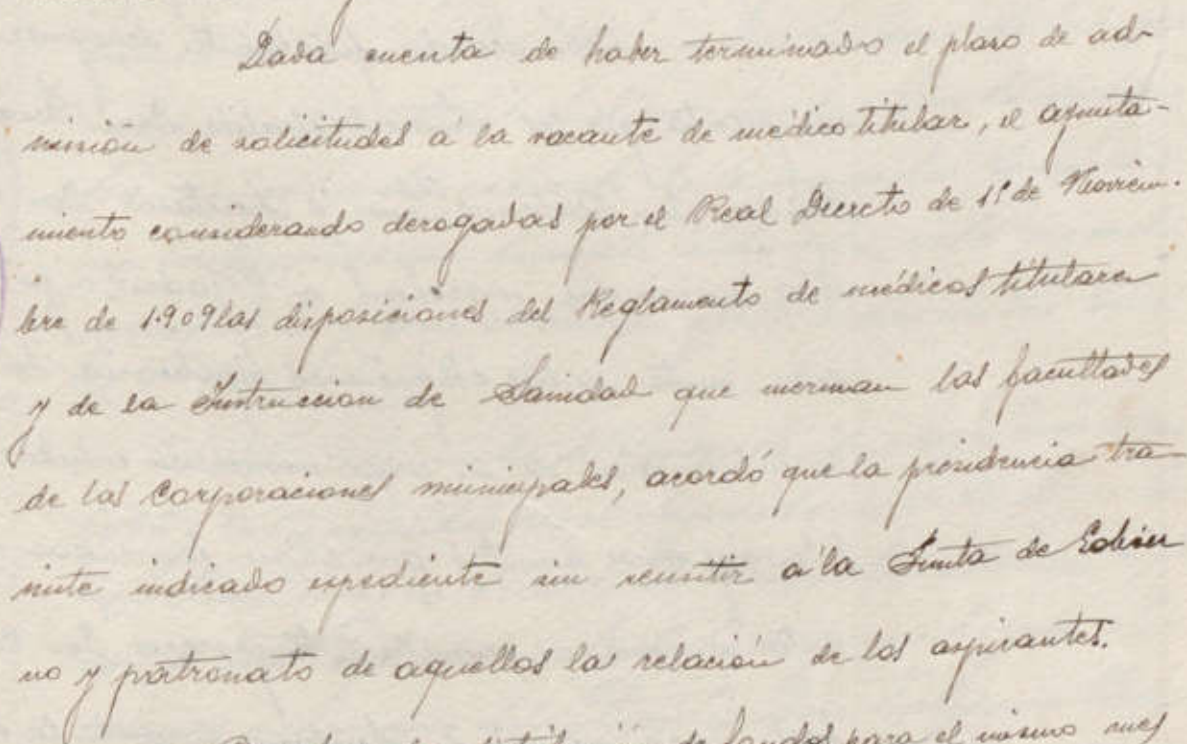 Dada cuenta de haber terminado el plazo de ad-
misión de solicitudes á la vacante de médico titular, el ayunta-
miento considerando derogadas por el Real Decreto de 1º de Noviem-
bre de 1.909 las disposiciones del Reglamento de médicos titulares
y de la Instruccion de Sanidad que merman las facultades
de las Corporaciones municipales, acordó que la presidencia tra-
mite indicado expediente sin remitir á la Junta de Gobier
no y patronato de aquellos la relación de los aspirantes.
de fondos para el mismo mes